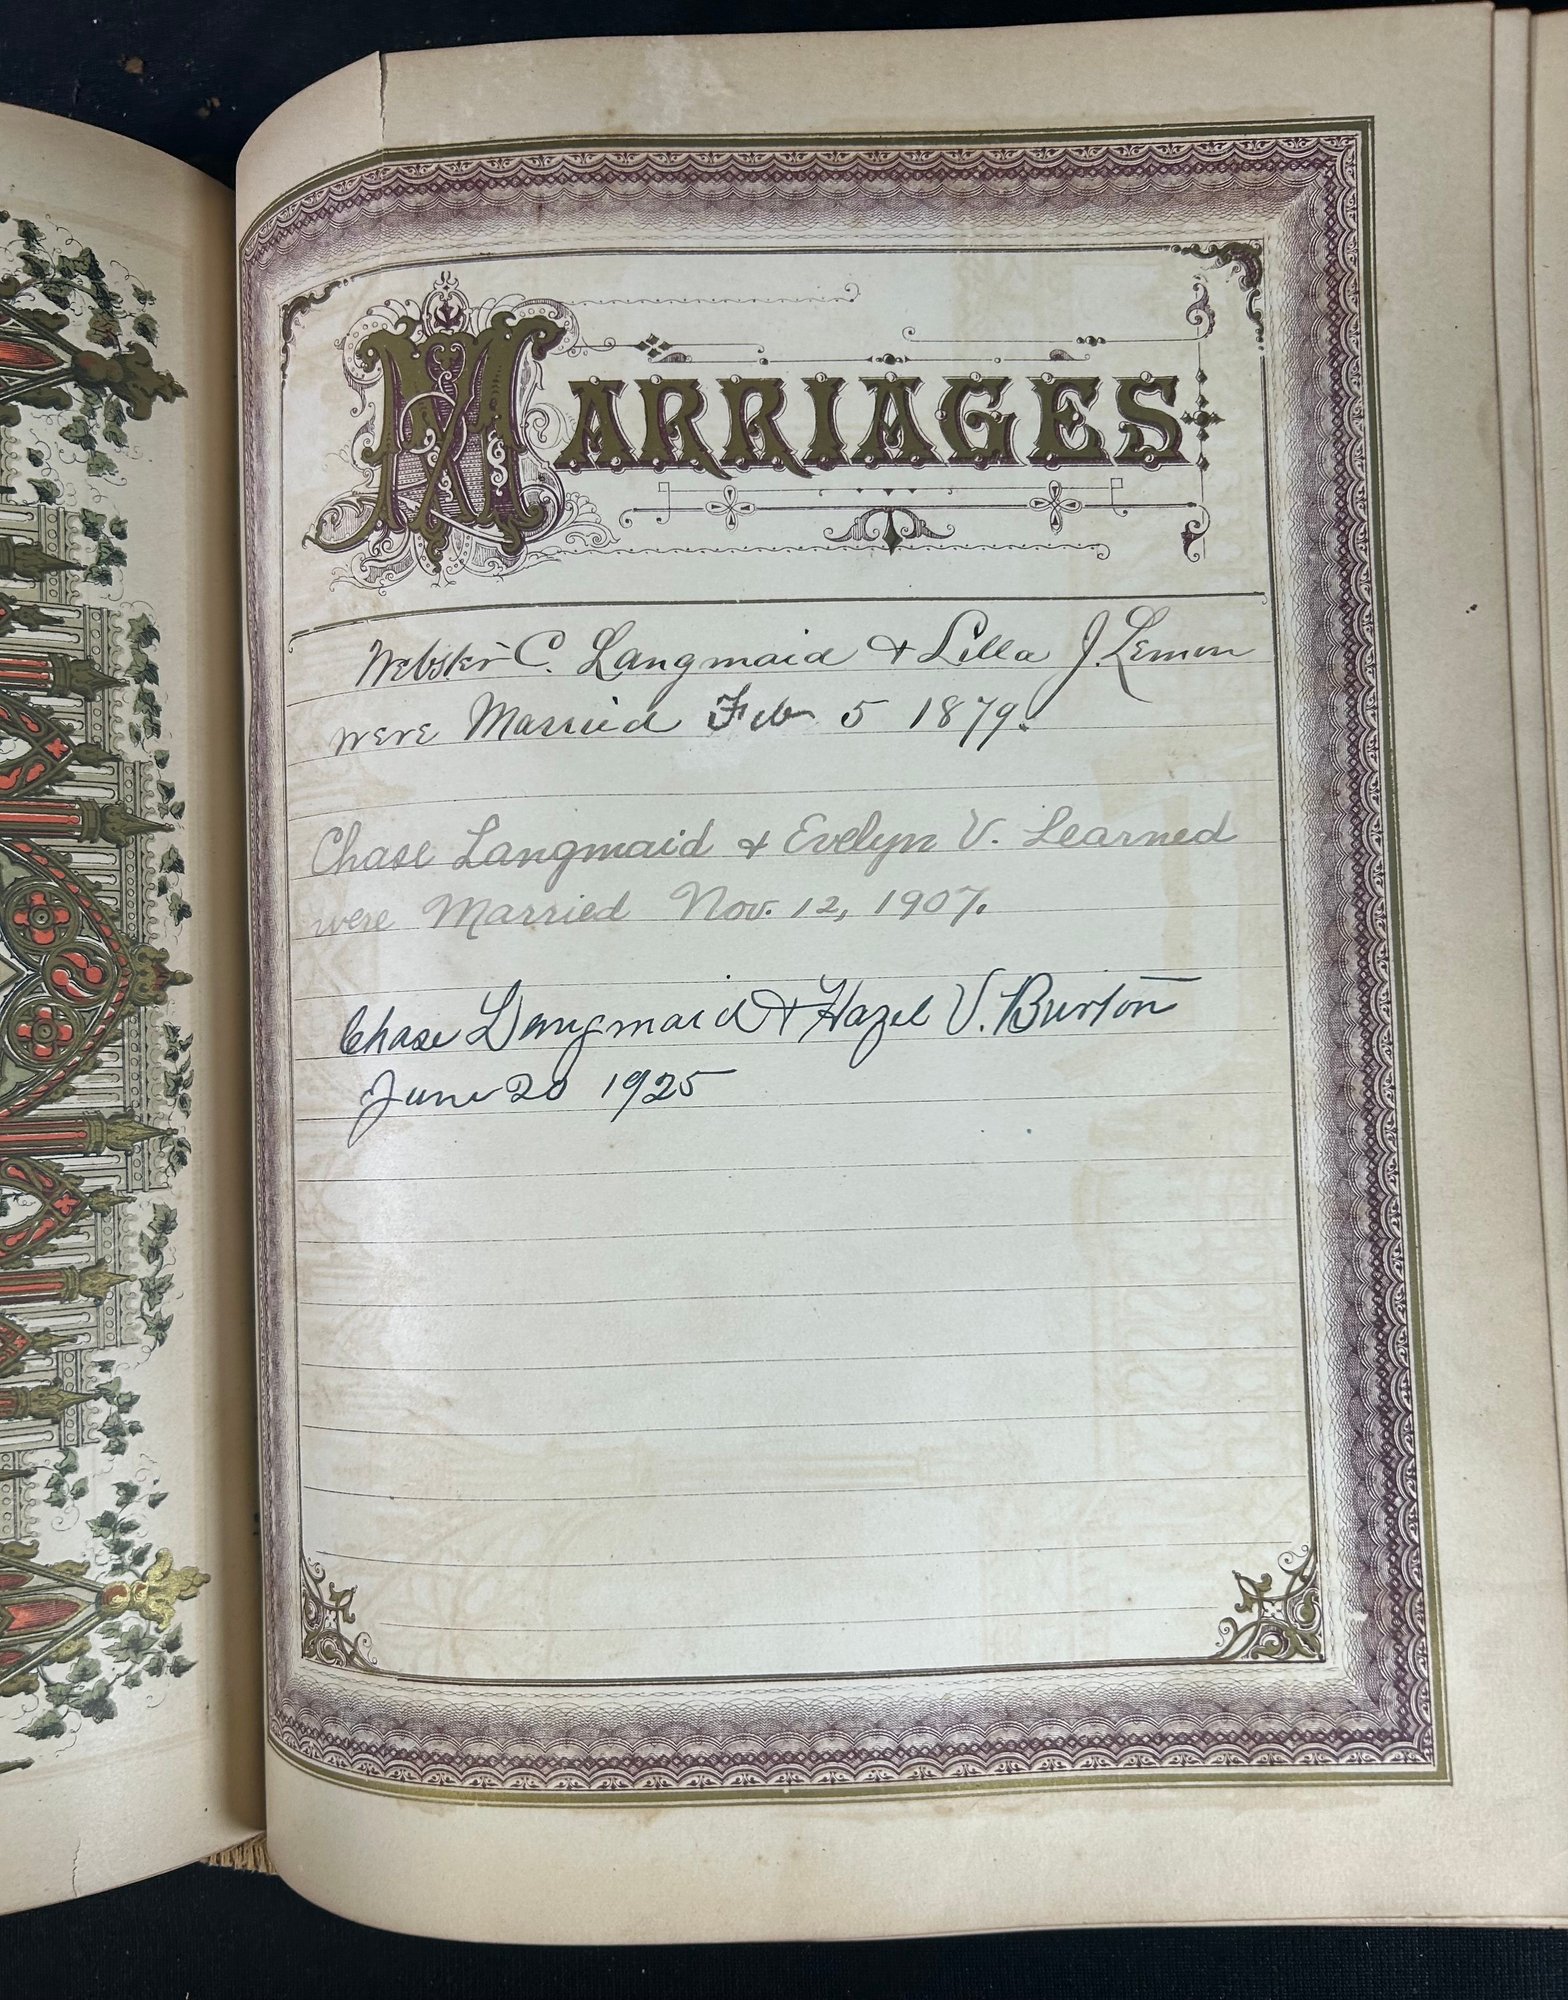 MARRIAGES
Webster C. Langmaid & Lilla J. Lemon
were Married Feb 5 1879.
Chase Langmaid & Evelyn V. Learned
were Married Nov. 12, 1907.
Chase Langmaid & Hazel V. Burton
June 20 1925